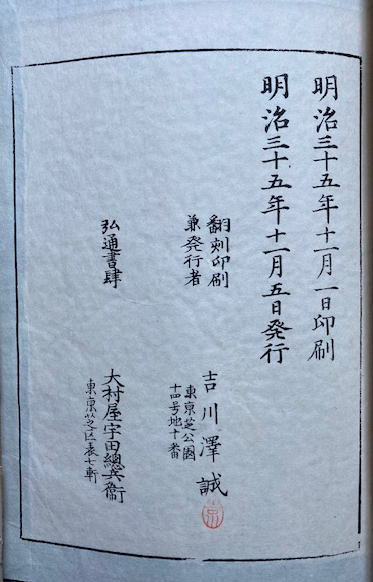 明治三十五年十一月一日印刷
明治三十五年十一月五日発行
翻刻印刷
兼発行者
吉川澤誠
東京芝公園
十四号地十番
弘通書肆
大村屋宇田總兵衞
東京芝区表七軒